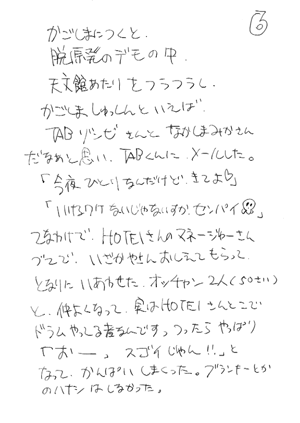 ⑥
かごしまにつくと、
脱原発のデモの中、
天文館あたりをフラフラし、
かごしましゅっしんといえば、
TABゾンビさんと なかしまみかさん
だなぁと思い、TABくんに メールした。
「今夜ひとりなんだけど、きてよ♡」
「いけるワケないじゃないすか、センパイ💀」
てなわけで、HOTEIさんのマネージャーさん
づてで、いざかやさん おしえてもらって、
となりに いあわせた、オッチャン 2人(50さい)
と、仲よくなって、実はHOTEIさんとこで
ドラム やってる者なんです、つったら やっぱり
「おー、スゴイじゃん!!」と
なって、かんぱい しまくった。ブランキーとか
のハナシ はしなかった。